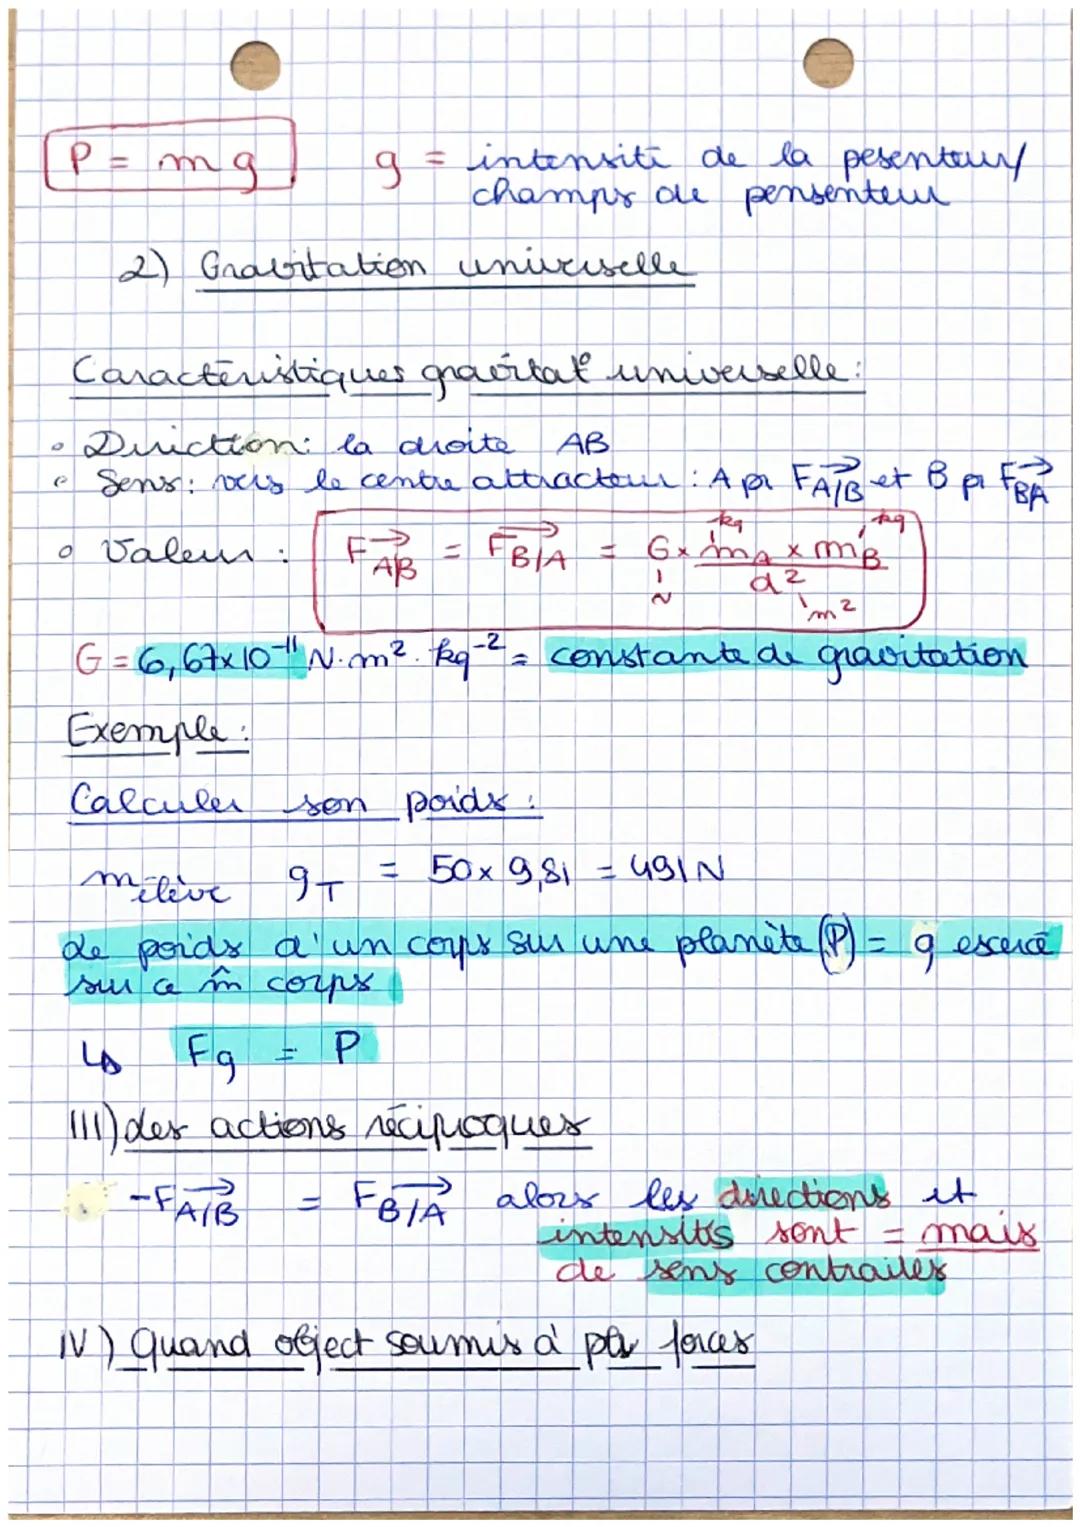 P = mg g = intensité de la pesenteur/
champs de pensenteur
2) Gravitation universelle
Caractéristiques gravitat° universelle:
• Direction: la droite AB
• Sens: vers le centre attracteur: A pr F A/B et B pr F BA
• Valeur : F A/B = F B/A = G x mA x mB / d²
kg kg
N m²
G = 6,67x10⁻¹¹ N.m².kg⁻² = constante de gravitation
Exemple:
Calculer son poids:
mélève gT = 50x9,81 = 491N
Le poids d'un corps sur une planète (P) = g escercé
sur ce m̂ corps
↳ Fg = P
III) des actions réciproques
-F A/B = F B/A alors les directions et
intensités sont = mais
de sens contraires
IV) Quand object soumis à forces